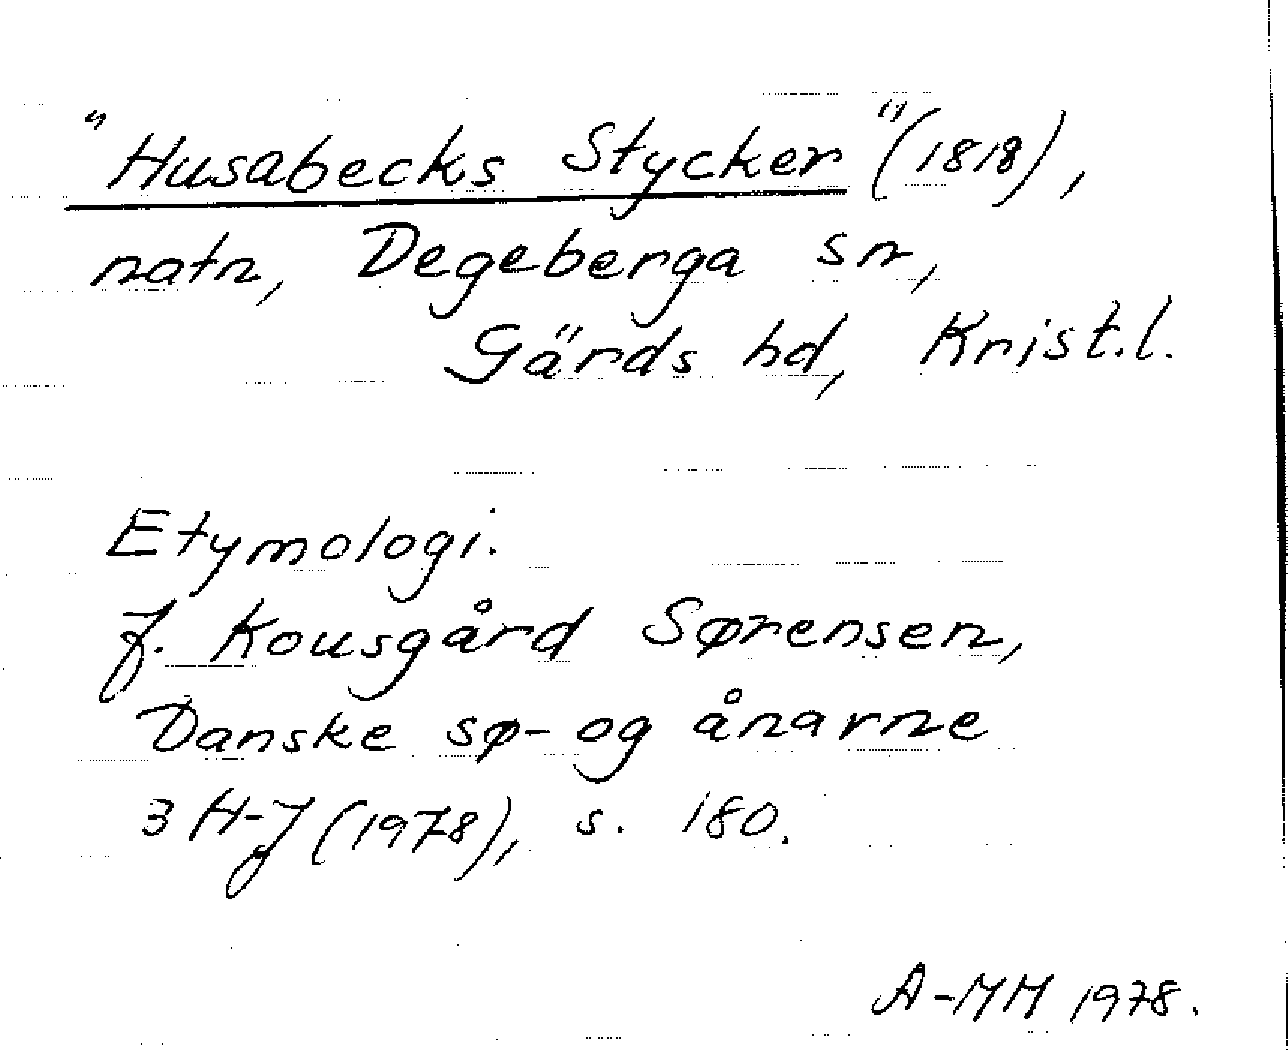 "Husabecks Stycker" (1818),
natn, Degeberga sn,
Gärds hd, Krist.l.
Etymologi.
J. Kousgård Sørensen,
Danske sø- og ånarne
3 H-J (1978), s. 180.
A-MM 1978.